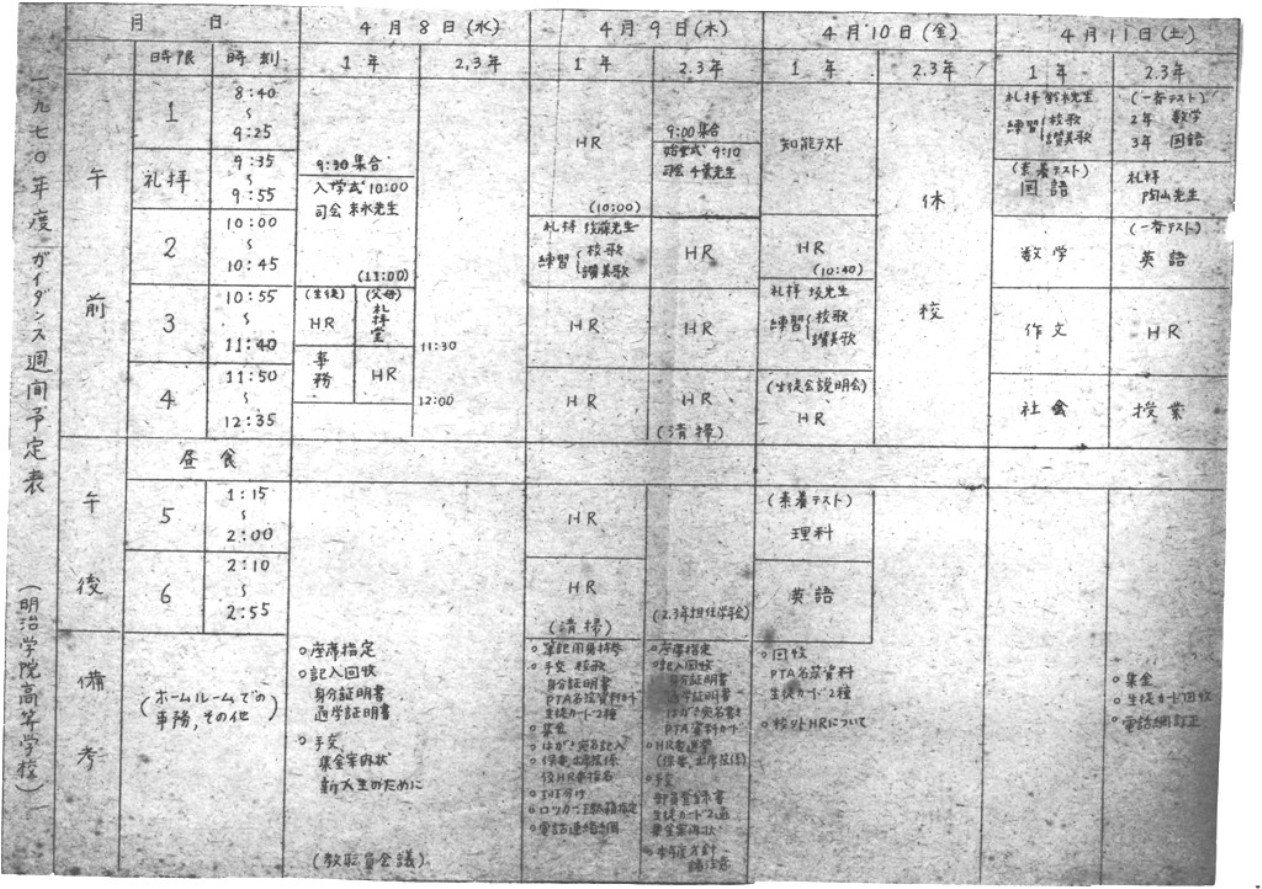 一九七〇年度ガイダンス週間予定表 (明治学院高等学校)
月 日 4月8日(水) 4月9日(木) 4月10日(金) 4月11日(土)
時限 時刻 1年 2,3年 1年 2.3年 1年 2.3年 1年 2.3年
午前
1
8:40
〜
9:25
礼拝
9:35
〜
9:55
2
10:00
〜
10:45
3
10:55
〜
11:40
4
11:50
〜
12:35
昼食
午後
5
1:15
〜
2:00
6
2:10
〜
2:55
備考
(ホームルームでの
事務,その他)
9:30集合
入学式10:00
司会 末永先生
(11:00)
(生徒)
HR
事務
(父母)
礼拝堂
HR
11:30
12:00
○座席指定
○記入回收
身分証明書
通学証明書
○手交
集金案内状
新入生のために
(教職員会議)
HR
(10:00)
礼拝 後藤先生
練習 校歌
讃美歌
HR
HR
HR
HR
(清掃)
○筆記用具持参
○手交 校歌
身分証明書
PTA名簿資料カード
生徒カード2種
○集金
○はがき宛名記入
○保奉,出席係
仮HR委指名
○班分け
○ロッカー,下駄箱指定
○電話連絡網
9:00集合
始業式 9:10
司会 千葉先生
HR
HR
HR
(清掃)
(2.3年担任学年会)
○座席指定
○記入回收
身分証明書
通学証明書
はがき宛名書き
PTA資料カード
○HR委選挙
(保奉,出席係)
○手交
部員登録書
生徒カード2通
集金案内状
○本年度方針
諸注意
知能テスト
HR
(10:40)
礼拝 坂先生
練習 校歌
讃美歌
(生徒会説明会)
HR
(素養テスト)
理科
英語
○回收
PTA名簿資料
生徒カード2種
○校外HRについて
休校
礼拝 鈴木先生
練習 校歌
讃美歌
(素養テスト)
国語
数学
作文
社会
(一斉テスト)
2年 数学
3年 国語
礼拝
陶山先生
(一斉テスト)
英語
HR
授業
○集金
○生徒カード回收
○電話網訂正